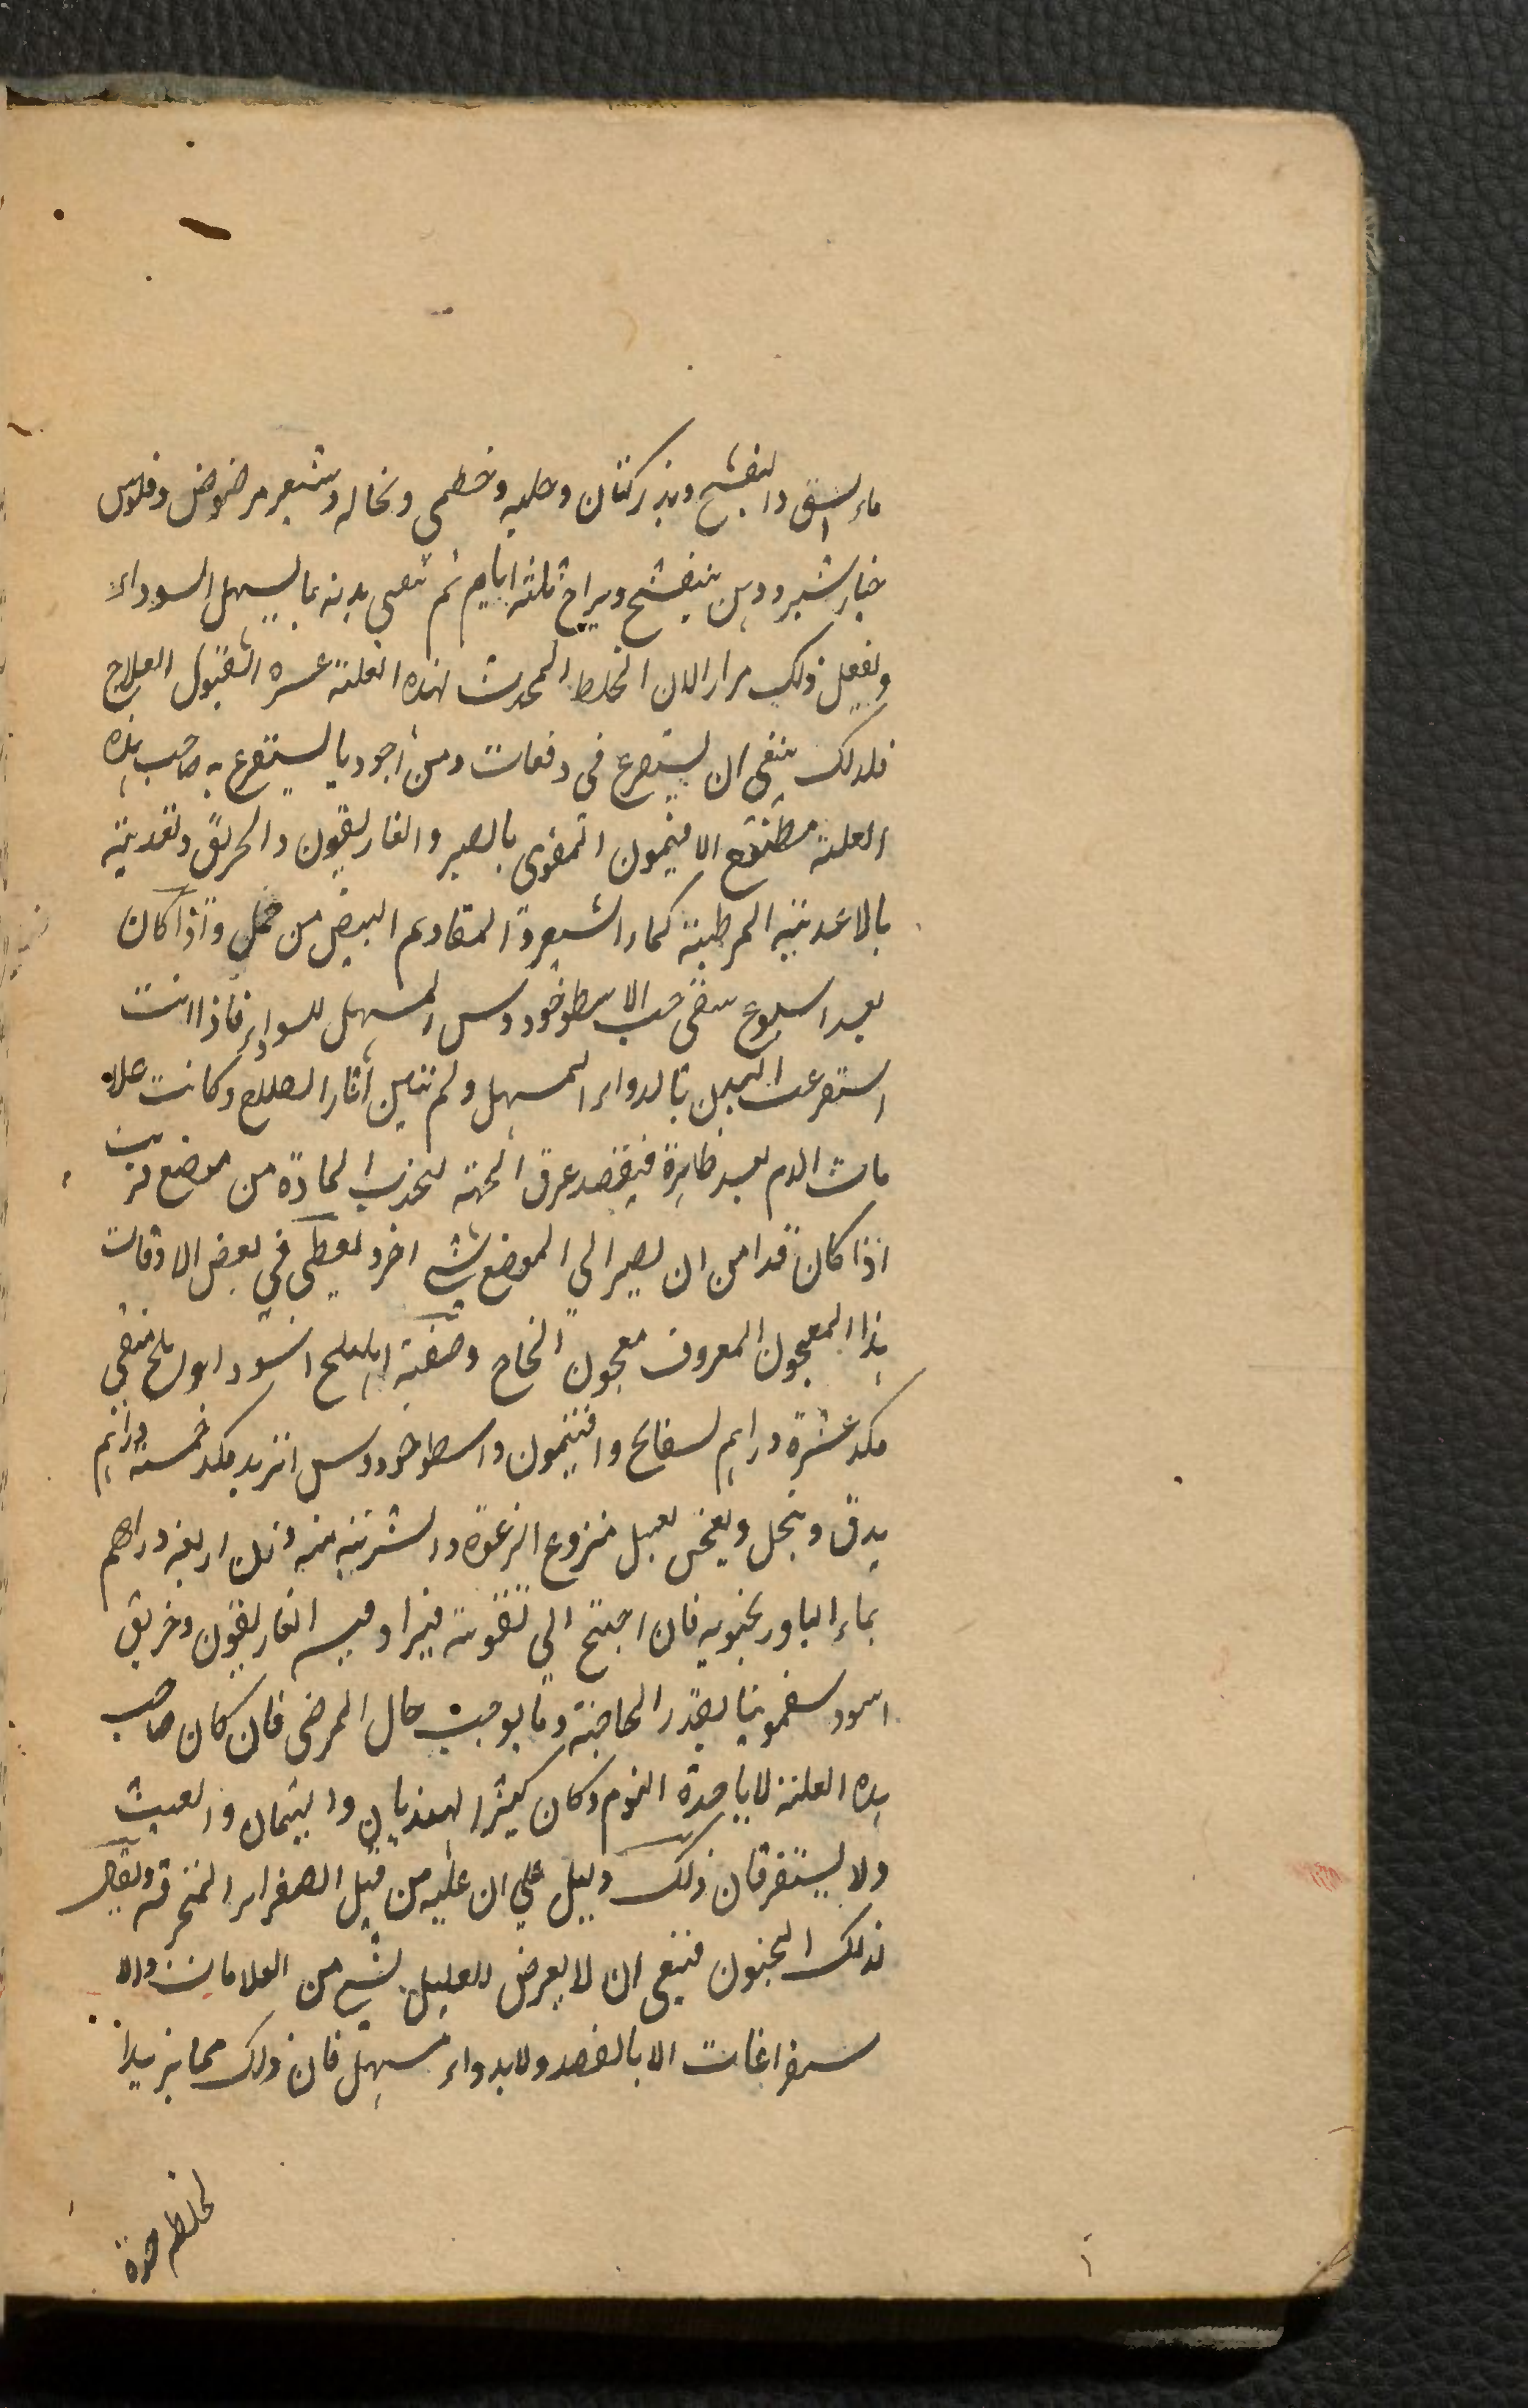 ماء السلق والبنفسج وبذر كتان وحلبه وخطمي ونخاله وشعير مرضوض وفلوس
خيار شنبر ودهن بنفسج ويراح ثلثة ايام ثم تنقى بدنه بما يسهل السوداء
ويفعل ذلك مرارا لان الخلط المحدث لهذه العلة عسرة القبول العلاج
فلذلك ينبغي ان يستفرغ في دفعات ومن اجود ما يستفرغ به صاحب هذه
العلة مطبوخ الافتيمون المقوى بالصبر والغاريقون والخربق وتغذيته
بالاغذية المرطبة كماء الشعير والمقادم البيض من حمل واذا كان
بعد اسبوع سقى حب الاسطوخودوس المسهل للسوداء فاذا انت
استفرغت البدن بالدواء المسهل ولم تتبين آثار الصلاح وكانت علا
مات الدم بعد ظاهرة فيفصد عرق الجبهة لتجذب المادة من موضع قريب
اذا كان قد امن ان يصير الي الموضع شيء اخر ويعطى في بعض الاوقات
هذا المعجون المعروف معجون النجاح وصفته اهليلج اسود املج منقى
مكد عشرة دراهم بسفايج وافتيمون واسطوخودوس اتربد مكد خمسة دراهم
يدق وينخل ويعجن بعسل منزوع الرغوة والشربة منه وزن اربعة دراهم
بماء الباورنجبويه فان احتيج الي تقويته فيزاد فيه الغاريقون وخربق
اسود سقمونيا بقدر الحاجة وما يوجب حال المرضى فان كان صاحب
هذه العلة لا ياخذه النوم وكان كثير الهذيان والهيمان والعبث
ولا يستقر فان ذلك دليل علي ان علته من قبل الصفراء المحترقة ويقال
لذلك الجنون فينبغي ان لا يعرض للعليل بشيء من العلامات والا
ستفراغات الا بالفصد ولا بدواء مسهل فان ذلك مما يزيد ا
لخلط حدة